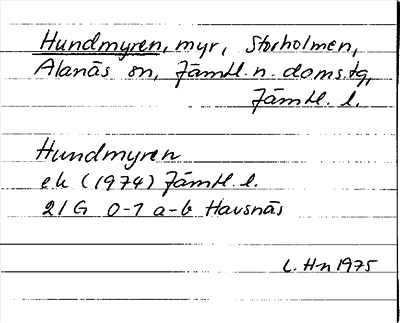 Hundmyren, myr, Storholmen,
Alanäs sn, Jämtl. n. doms.tg,
Jämtl. l.
Hundmyren
ek (1974) Jämtl. l.
21 G 0-1 a-b Havsnäs
L. Hn 1975